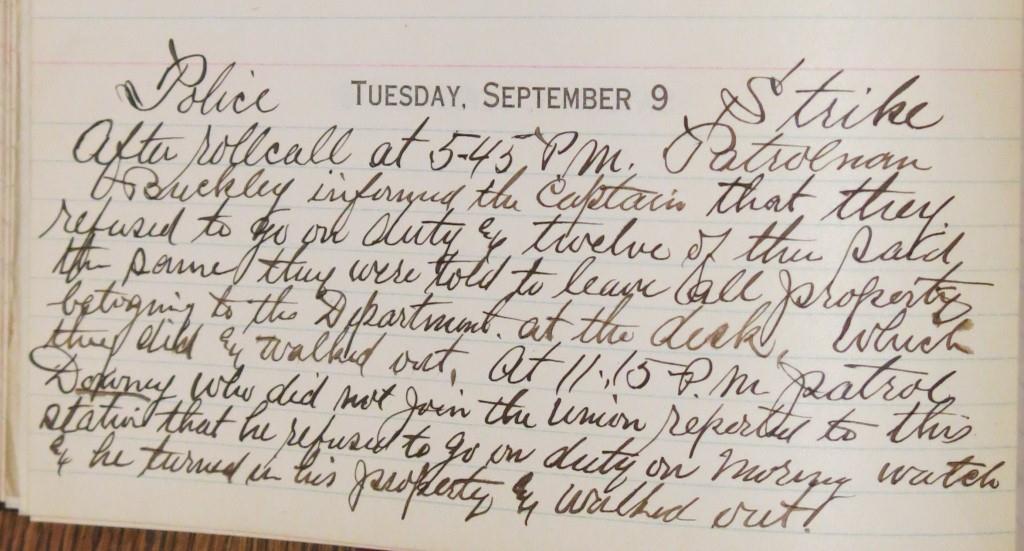 Police TUESDAY, SEPTEMBER 9 Strike
After rollcall at 5-45 P.M. Patrolman
Buckley informed the Captain that they
refused to go on duty & twelve of them said
the same they were told to leave all property
belonging to the Department. at the desk, which
they did & walked out. At 11.15 P.M patrol
Downey who did not join the union reported to this
station that he refused to go on duty on Morning watch
& he turned in his property & walked out.